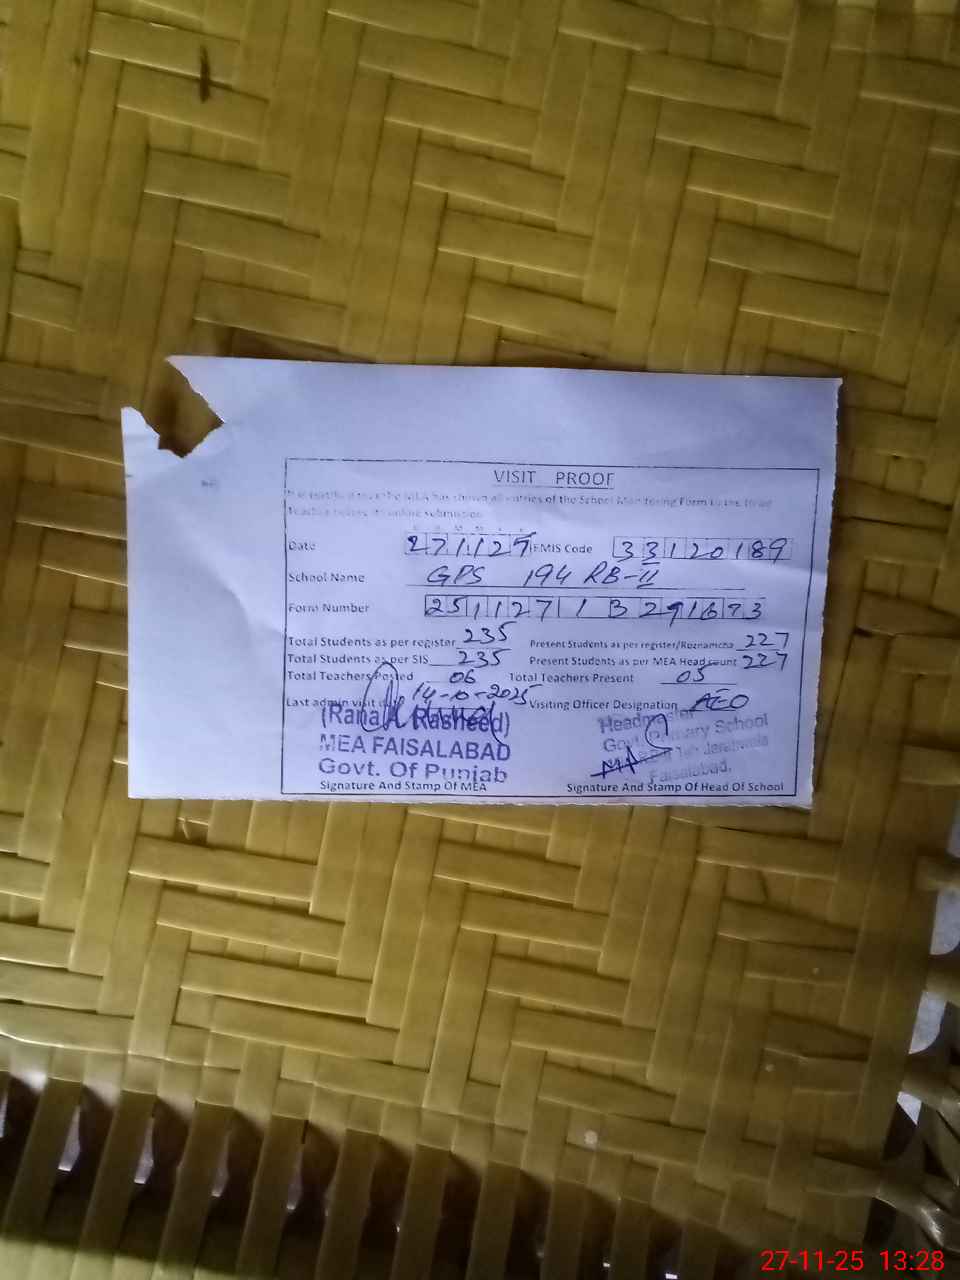 VISIT PROOF
It is certified that the MEA has shown all entries of the School Monitoring Form to the Head
Teacher before its online submission
Date 271125 EMIS Code 33120189
School Name GPS 194 RB-II
Form Number
Total Students as per register 235 Present Students as per register/Roznamcha 227
Total Students as per SIS 235 Present Students as per MEA Head count 227
Total Teachers Posted 06 Total Teachers Present 05
Last admin visit 14-10-2025 Visiting Officer Designation AEO
(Rana Rasheed)
MEA FAISALABAD
Govt. Of Punjab
Signature And Stamp Of MEA
Headmaster
Govt. Primary School
Jaranwala
Faisalabad.
Signature And Stamp Of Head Of School
27-11-25 13:28